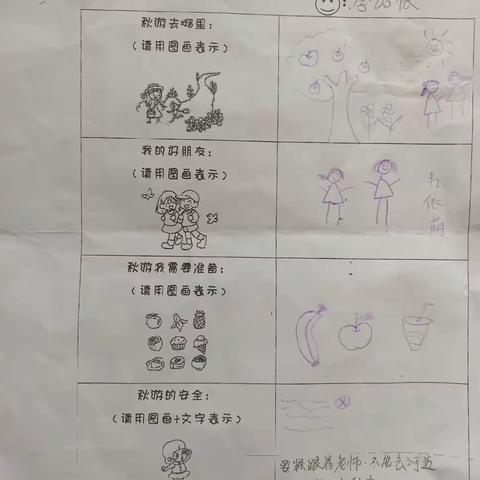 秋游去哪里:
(请用图画表示)
我的好朋友:
(请用图画表示)
韦依萌
秋游我需要准备:
(请用图画表示)
秋游的安全:
(请用图画+文字表示)
要紧跟着老师.不能去河边